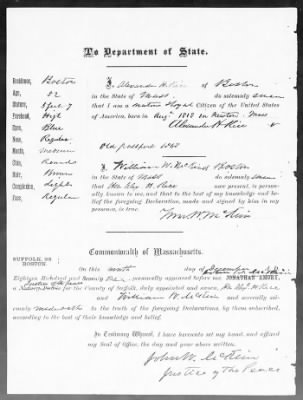 To Department of State.
Residence, Boston
Age, 52
Stature, 5 feet 7
Forehead, High
Eyes, Blue
Nose, Regular
Mouth, Medium
Chin, Round
Hair, Brown
Complexion, Light
Face, Regular
I, Alexander H. Rice of Boston
in the State of Mass do solemnly swear
that I am a native & loyal Citizen of the United States
of America, born in Aug 1818 in Newton, Mass
Alexander H. Rice
Old passport
I, William W. McKim of Boston
in the State of Mass do solemnly swear
that Hon. Alex H. Rice are present, is personally
known to me, and that to the best of my knowledge and belief
the foregoing Declaration, made and signed by him in my
presence, is true.
Wm. W. McKim
Commonwealth of Massachusetts.
SUFFOLK, SS
BOSTON.
On this day of December
Eighteen Hundred and Seventy personally appeared before me JONATHAN AMORY,
Justice of the Peace
a Notary Public for the County of Suffolk, duly appointed and sworn, H. Rice
and William W. McKim and severally
made oath to the truth of the foregoing Declarations, by them subscribed,
according to the best of their knowledge and belief.
In Testimony Whereof, I have hereunto set my hand, and affixed
my Seal of Office, the day and year above written.
John W. McKim
Justice of the Peace